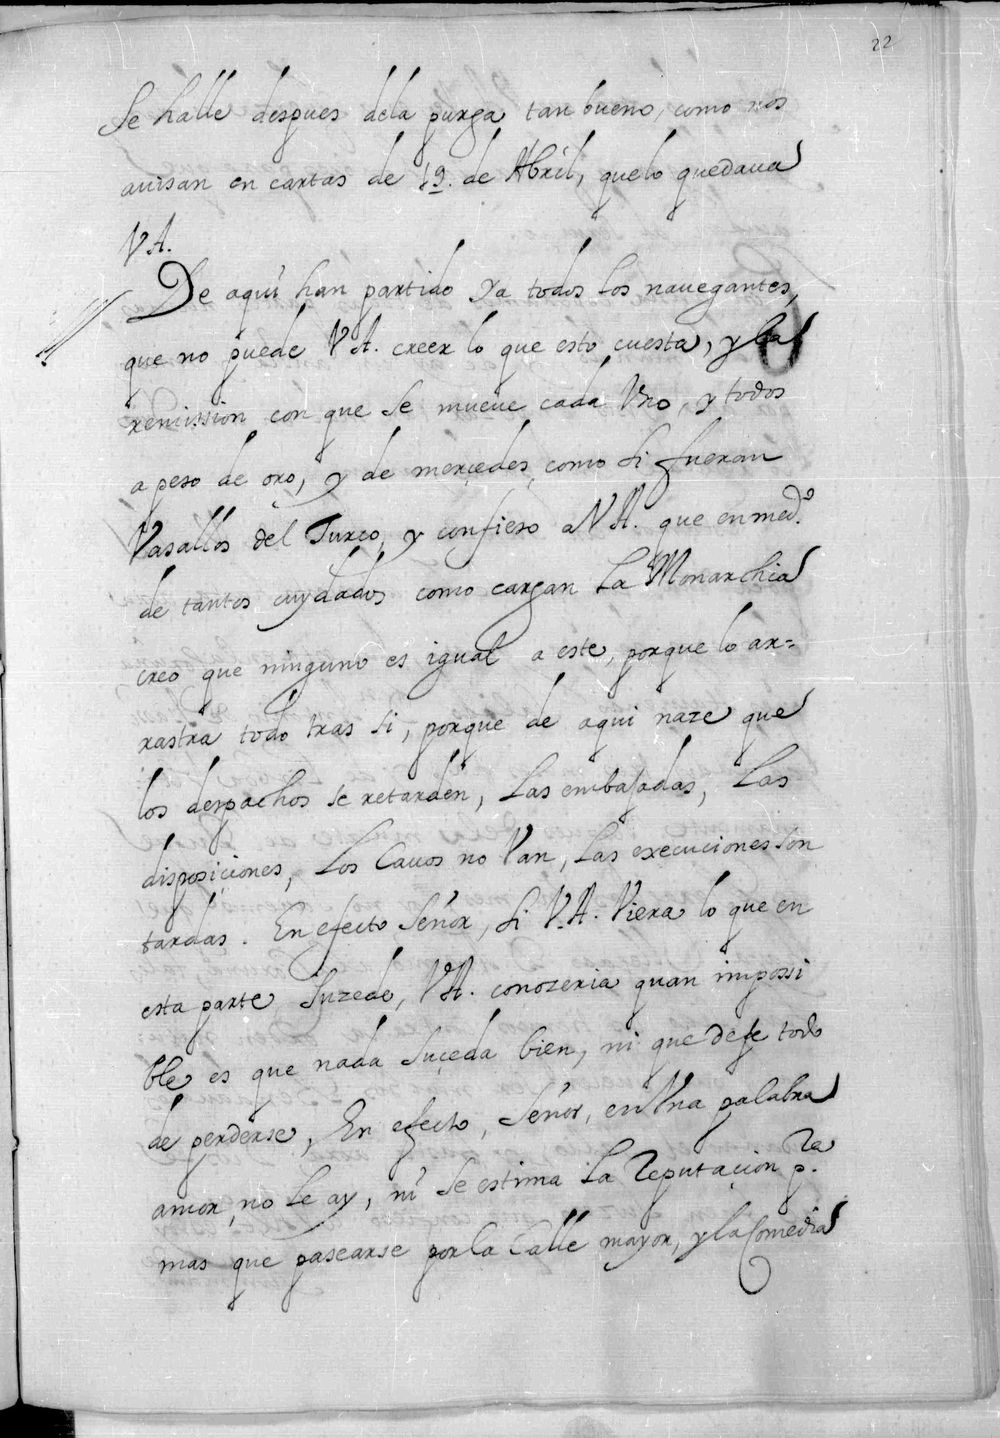 22
se halle despues dela purga tan bueno, como nos
auisan en cartas de 19. de Abril, quelo quedaua
VA.
De aqui han partido ya todos los nauegantes,
que no puede VA. creer lo que esto cuesta, y la
remission con que se mueue cada Vno, y todos
a peso de oro, y de merçedes como si fueran
Vasallos del Turco, y confieso a VA. que en med.º
de tantos cuydados como cargan la Monarchia
creo que ninguno es igual a este, porque lo ar=
rastra todo tras si, porque de aqui naze que
los despachos se retarden, las embajadas, las
disposiçiones, los Cauos no Van, las execuciones son
tardas. En efecto Señor, si V.A. Viera lo que en
esta parte suzede, VA. conozeria quan impossi
ble es que nada suçeda bien, ni que deje todo
de perderse, En efecto, Señor, en Vna palabra
amor no le ay, ni se estima la Reputaçion p.ra
mas que pasearse por la Calle mayor, y la Comedia